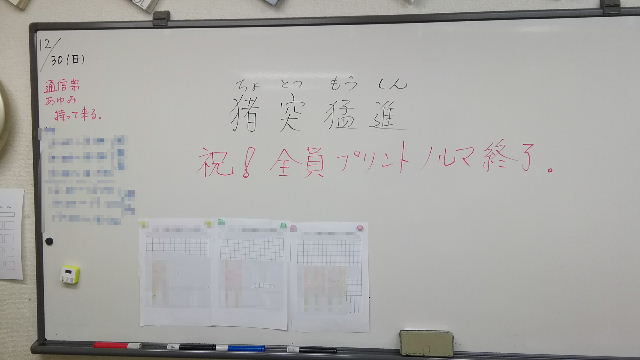 12/30(日)
通信票
あゆみ
持って来る。
ちょ とつ もう しん
猪突猛進
祝！全員プリントノルマ終了。